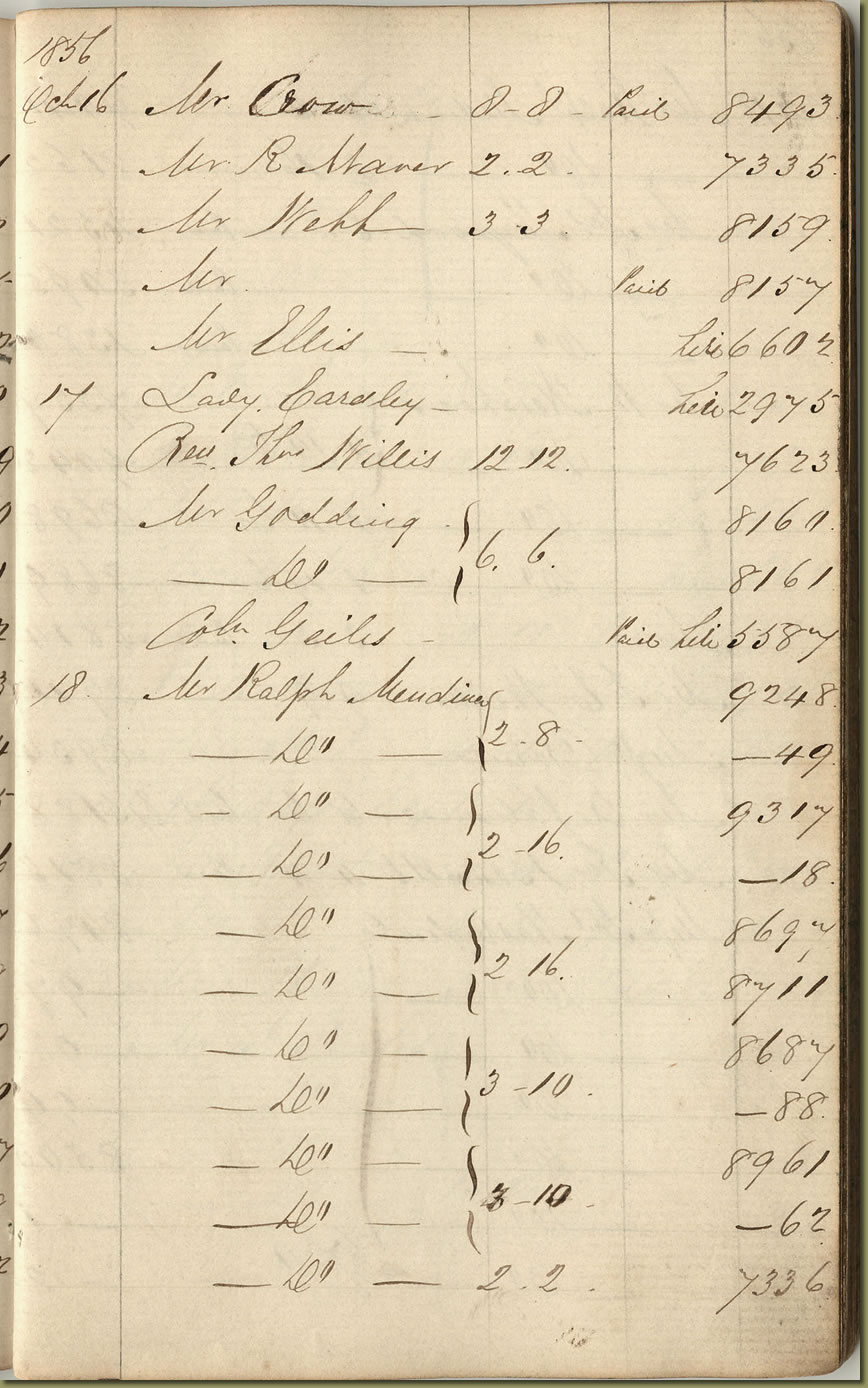 1856
Oct 16 Mr Crow - 8-8- Paid 8493.
Mr R 2.2. 7335.
Mr Webb 3.3. 8159.
Mr. Paid 8157
Mr Ellis — 6602
17 Lady Eardley - 2975
Rev. Thos Willis 12.12. 7623
Mr Godding. 8160.
— Do — 6. 6. 8161
Coln Geils - Paid 5587
18. Mr Ralph 9248.
— Do" — 2-8- —49.
— Do" — 9317
— Do" — 2-16. —18.
— Do" — 8697
— Do" — 2 16. 8711
— Do" — 8687
— Do" — 3-10. —88.
— Do" — 8961
— Do" — 3-10. —62.
— Do" — 2.2. 7336